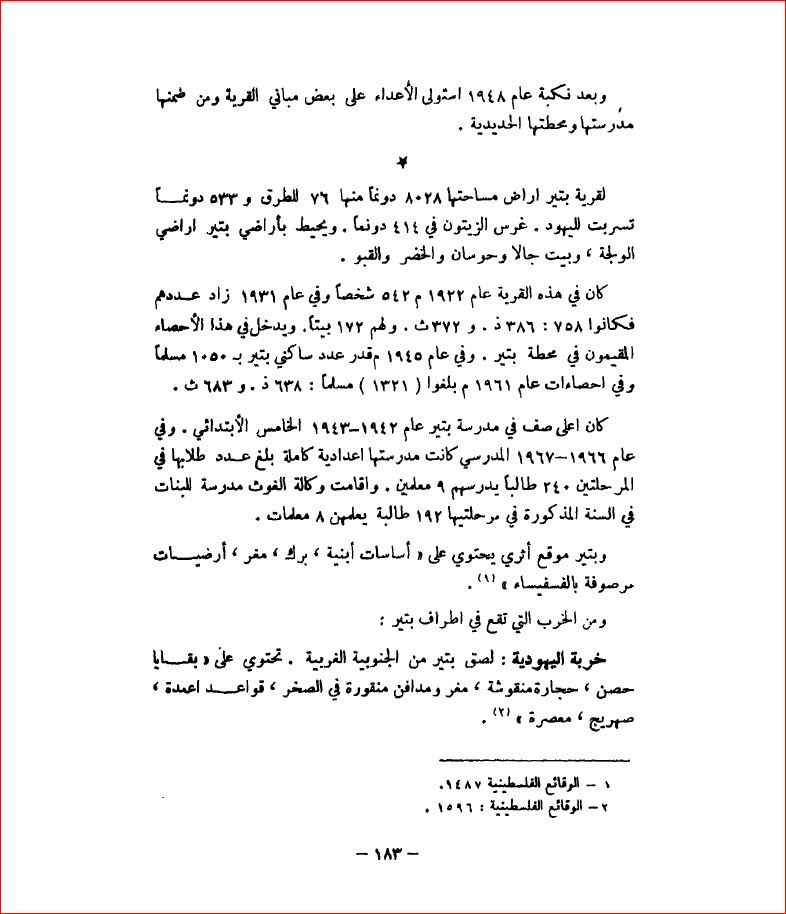 وبعد نكبة عام ١٩٤٨ استولى الأعداء على بعض مباني القرية ومن ضمنها
مدرستها ومحطتها الحديدية .
*
لقرية بتير اراض مساحتها ٨٠٢٨ دونماً منها ٧٦ للطرق و ٥٣٣ دونمـــاً
تسربت لليهود . غرس الزيتون في ٤١٤ دونماً . ويحيط بأراضي بتير اراضي
الولجة ، وبيت جالا وحوسان والخضر والقبو .
كان في هذه القرية عام ١٩٢٢ م ٥٤٢ شخصاً وفي عام ١٩٣١ زاد عـــددهم
فكانوا ٧٥٨ : ٣٨٦ ذ . و ٣٧٢ ث . ولهم ١٧٢ بيتاً. ويدخل في هذا الأحصاء
المقيمون في محطة بتير . وفي عام ١٩٤٥ م قدر عدد ساكني بتير بـ ١٠٥٠ مسلماً
وفي احصاءات عام ١٩٦١ م بلغوا ( ١٣٢١ ) مسلماً : ٦٣٨ ذ . و ٦٨٣ ث .
كان اعلى صف في مدرسة بتير عام ١٩٤٢–١٩٤٣ الخامس الأبتدائي . وفي
عام ١٩٦٦–١٩٦٧ المدرسي كانت مدرستها اعدادية كاملة بلغ عـــدد طلابها في
المرحلتين ٢٤٠ طالباً يدرسهم ٩ معلمين . واقامت وكالة الغوث مدرسة للبنات
في السنة المذكورة في مرحلتيها ١٩٢ طالبة يعلمهن ٨ معلمات .
وبتير موقع أثري يحتوي على « أساسات أبنية ، برك ، مغر ، أرضيـــات
مرصوفة بالفسفيساء » (١) .
ومن الخرب التي تقع في اطراف بتير :
خربة اليهودية : لصق بتير من الجنوبية الغربية . تحتوي على « بقـــايا
حصن ، حجارة منقوشة ، مغر ومدافن منقورة في الصخر ، قواعـــد اعمدة ،
صهريج ، معصرة » (٢) .
١ – الوقائع الفلسطينية ١٤٨٧.
٢– الوقائع الفلسطينية : ١٥٩٦ .
– ١٨٣ –